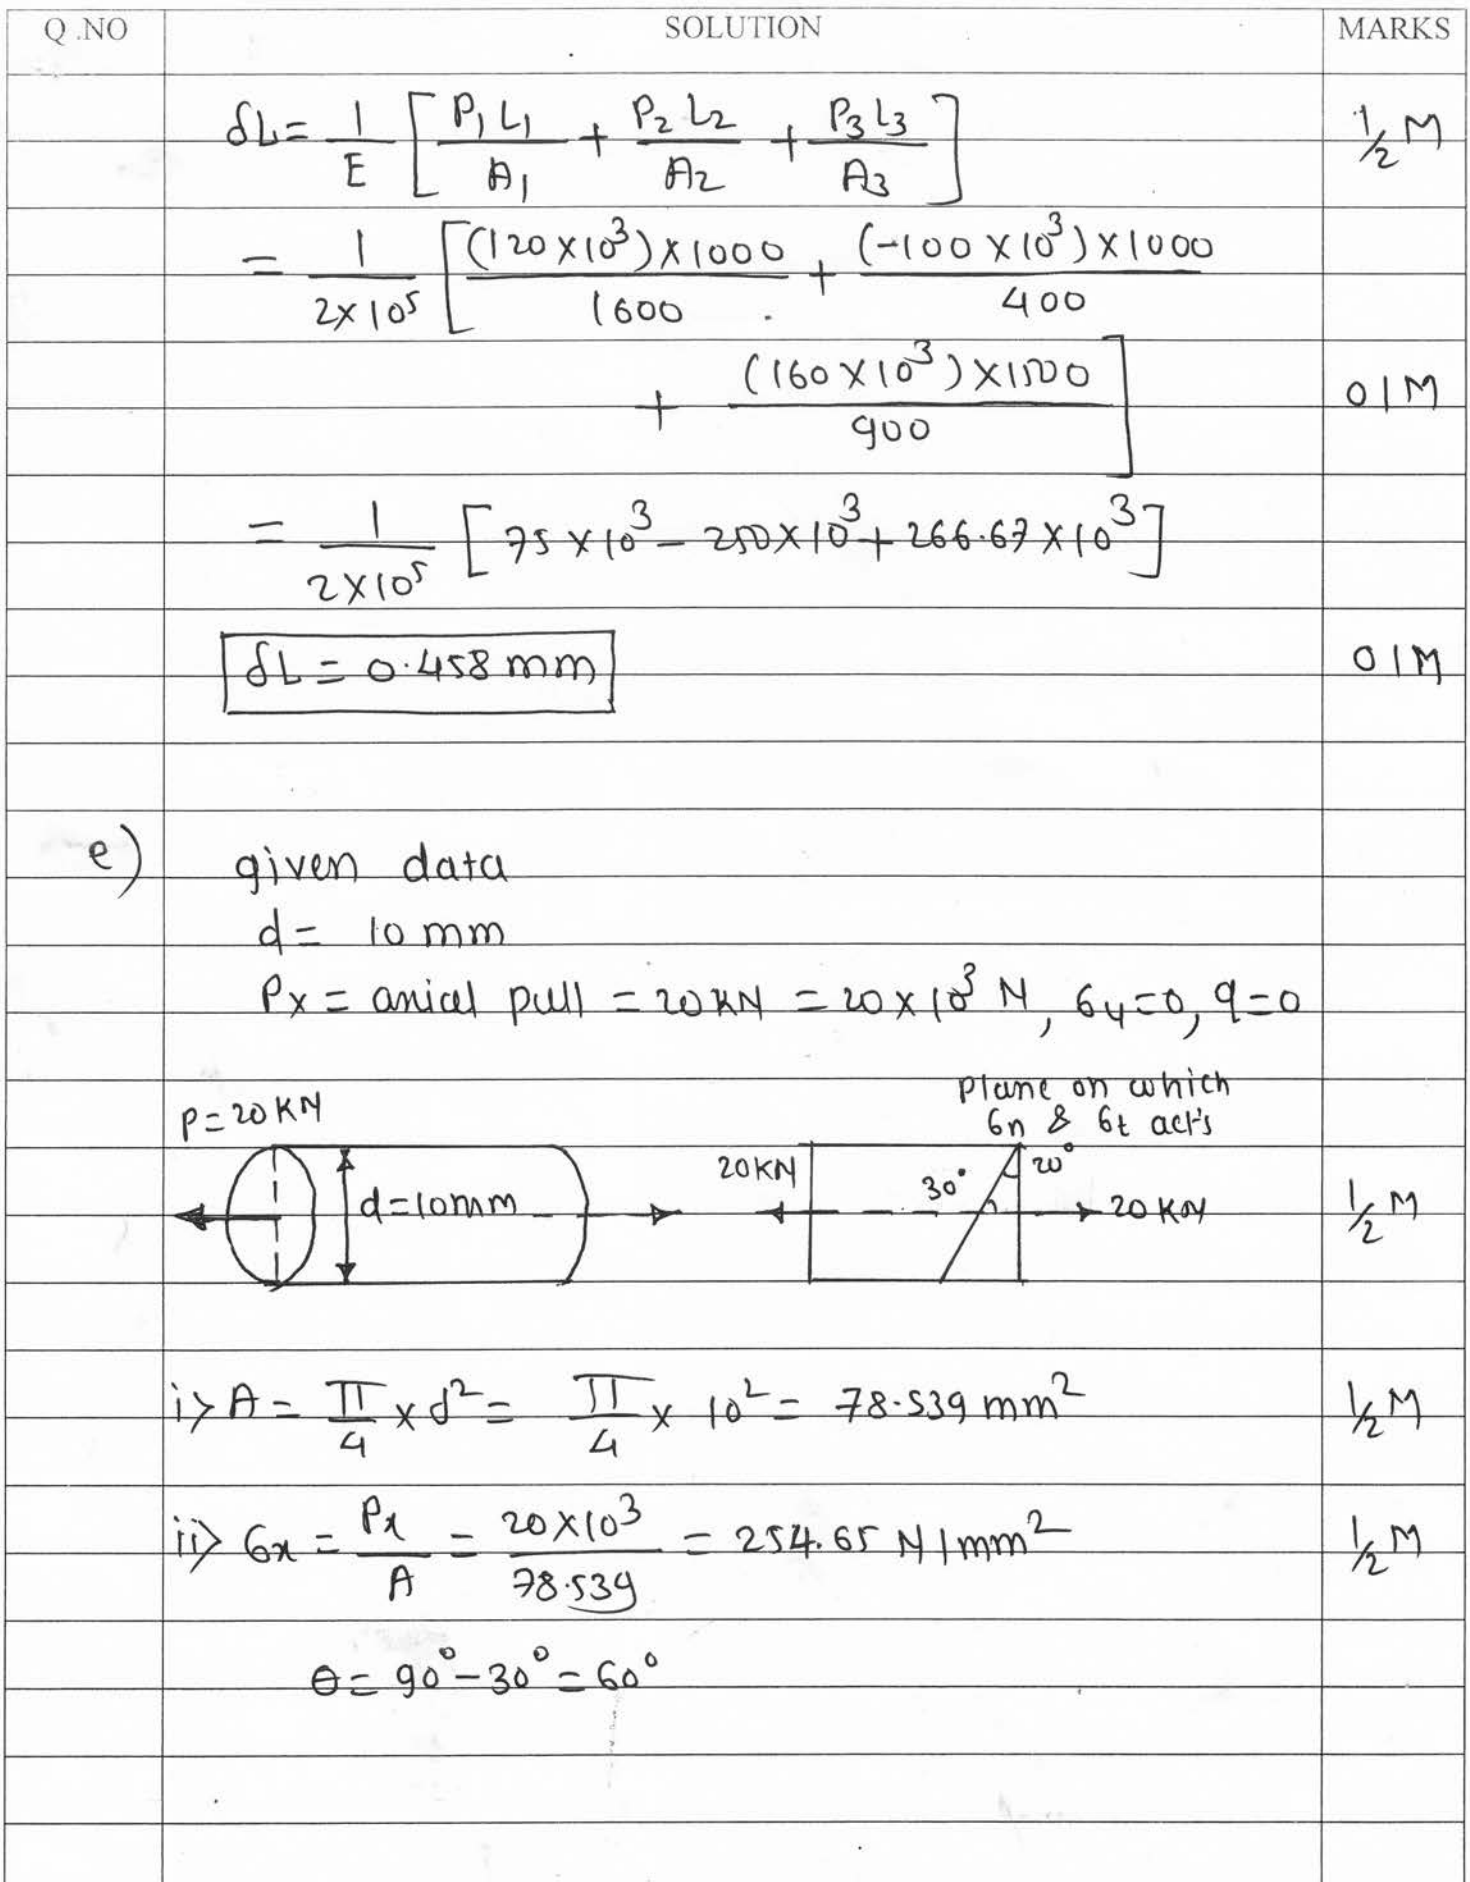 Q.NO SOLUTION MARKS
δL = 1/E [ P₁L₁/A₁ + P₂L₂/A₂ + P₃L₃/A₃ ] ½ M
= 1/(2×10⁵) [ (120×10³)×1000/1600 + (-100×10³)×1000/400
+ (160×10³)×1500/900 ] 01M
= 1/(2×10⁵) [ 75×10³ - 250×10³ + 266.67×10³ ]
δL = 0.458 mm 01M
e) given data
d = 10 mm
Px = axial pull = 20 KN = 20×10³ N, σy=0, q=0
Plane on which
P=20KN σn & σt act's
20KN 30° 20°
d=10mm 20 KN ½ M
i> A = π/4 × d² = π/4 × 10² = 78.539 mm² ½ M
ii> σx = Px/A = 20×10³/78.539 = 254.65 N/mm² ½ M
θ = 90° - 30° = 60°